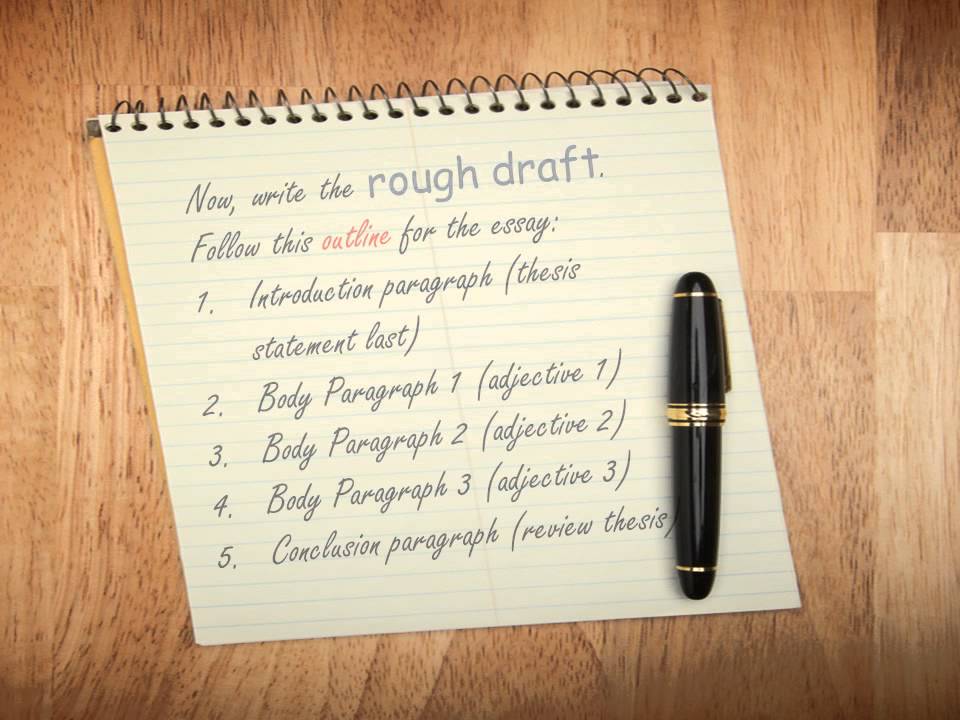 Now, write the rough draft.
Follow this outline for the essay:
1. Introduction paragraph (thesis
statement last)
2. Body Paragraph 1 (adjective 1)
3. Body Paragraph 2 (adjective 2)
4. Body Paragraph 3 (adjective 3)
5. Conclusion paragraph (review thesis)